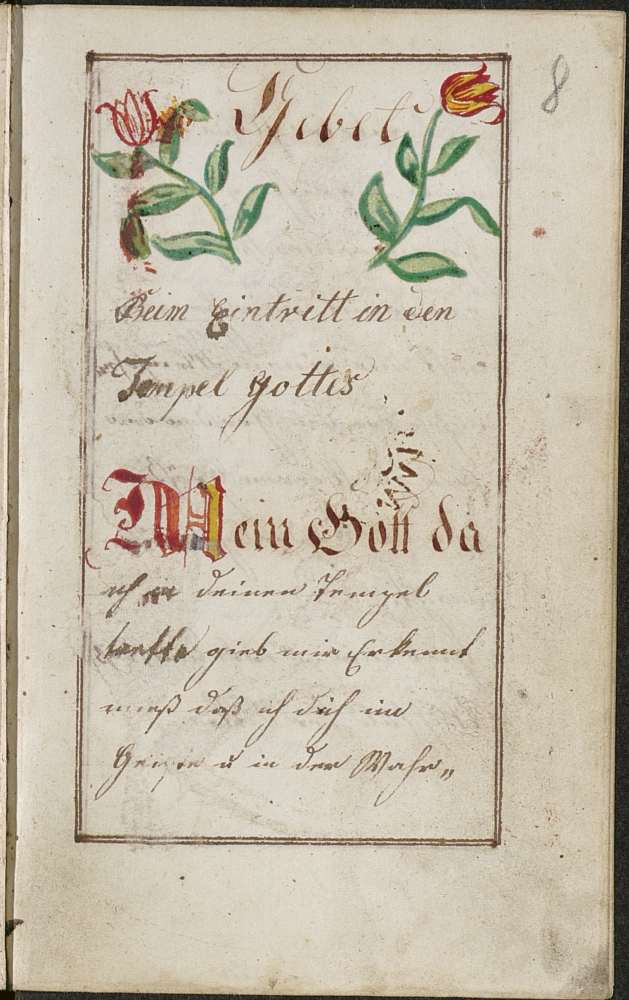 8
Gebet
Beim Eintritt in den
Tempel Gottes
Mein Gott da
ich in deinen Tempel
trette gieb mir Erkennt
nuß daß ich dich im
Geiste u in der Wahr„